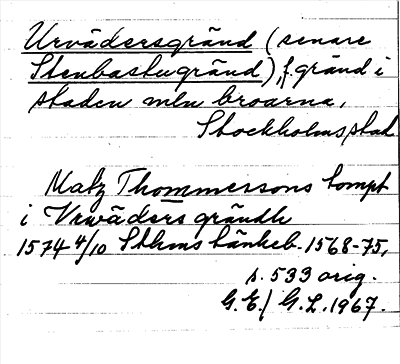 Urvädersgränd (senare
Stenbastugränd), f. gränd i
staden mln broarna,
Stockholms stad
Matz Thommersons tompt
i Vrwäders grändh
1574 4/10 Sthms tänkeb. 1568-75,
s. 533 orig.
G.E./G.L. 1967.